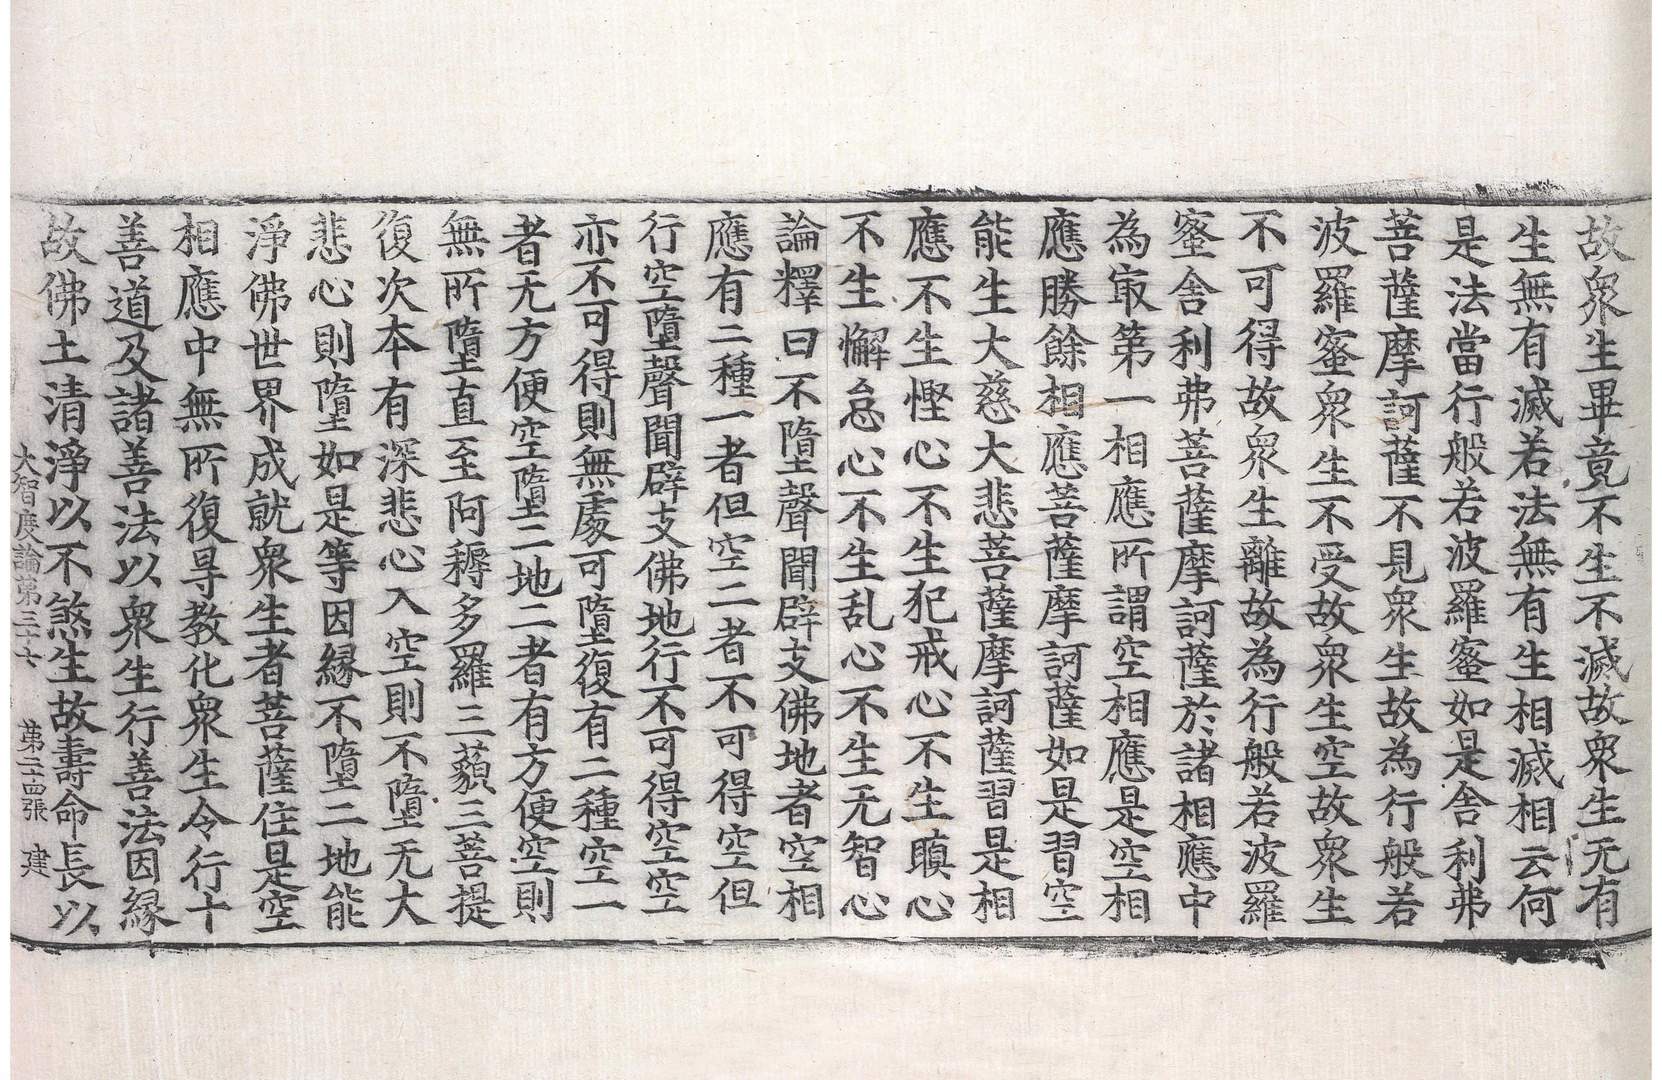 故衆生畢竟不生不滅故衆生无有
生無有滅若法無有生相滅相云何
是法當行般若波羅蜜如是舍利弗
菩薩摩訶薩不見衆生故為行般若
波羅蜜衆生不受故衆生空故衆生
不可得故衆生離故為行般若波羅
蜜舍利弗菩薩摩訶薩於諸相應中
為㝡第一相應所謂空相應是空相
應勝餘相應菩薩摩訶薩如是習空
能生大慈大悲菩薩摩訶薩習是相
應不生慳心不生犯戒心不生瞋心
不生懈怠心不生乱心不生无智心
論釋曰不墮聲聞辟支佛地者空相
應有二種一者但空二者不可得空但
行空墮聲聞辟支佛地行不可得空空
亦不可得則無處可墮復有二種空一
者无方便空墮二地二者有方便空則
無所墮直至阿耨多羅三藐三菩提
復次本有深悲心入空則不墮无大
悲心則墮如是等因緣不墮二地能
淨佛世界成就衆生者菩薩住是空
相應中無所復㝵教化衆生令行十
善道及諸善法以衆生行善法因緣
故佛土清淨以不煞生故壽命長以
大智度論第三十七 第二十四張 建